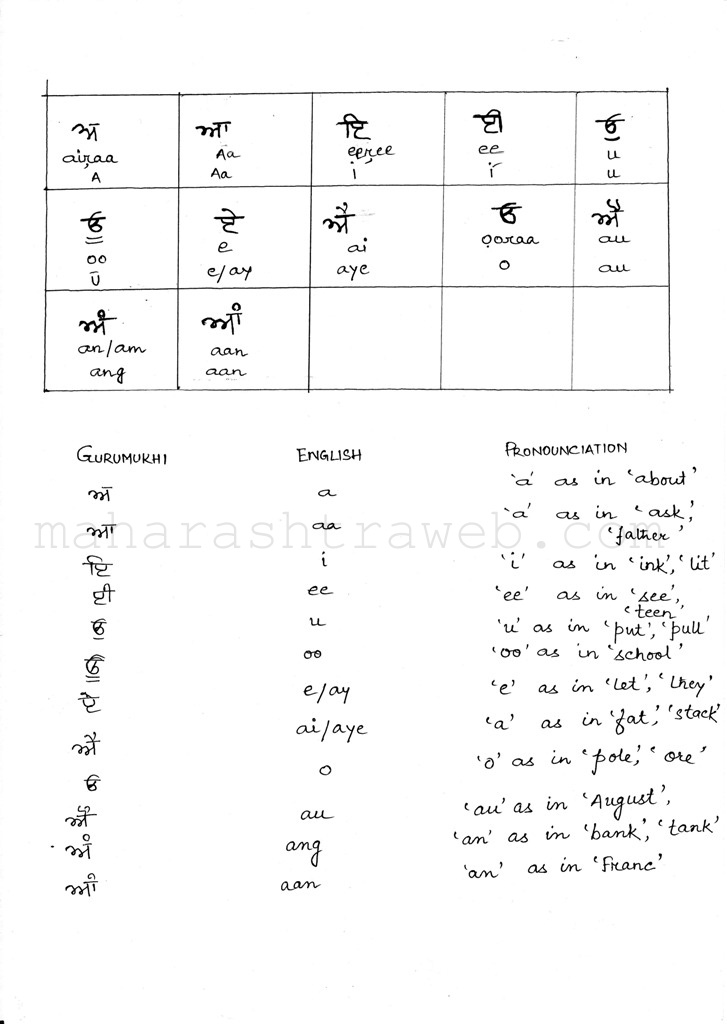 ਅ ਆ ਇ ਈ ਉ
airaa Aa eeree ee u
A Aa i ī u
ਊ ਏ ਐ ੳ ਔ
oo e ai ooraa au
ū e/ay aye o au
ਅੰ ਆਂ
an/am aan
ang aan
GURUMUKHI ENGLISH PRONOUNCIATION
ਅ a 'a' as in 'about'
ਆ aa 'a' as in 'ask',
'father'
ਇ i 'i' as in 'ink', 'lit'
ਈ ee 'ee' as in 'see',
'teen'
ਉ u 'u' as in 'put', 'pull'
ਊ oo 'oo' as in 'school'
ਏ e/ay 'e' as in 'let', 'they'
ਐ ai/aye 'a' as in 'fat', 'stack'
ੳ o 'o' as in 'pole', 'ore'
ਔ au 'au' as in 'August',
ਅੰ ang 'an' as in 'bank', 'tank'
ਆਂ aan 'an' as in 'Franc'
maharashtraweb.com